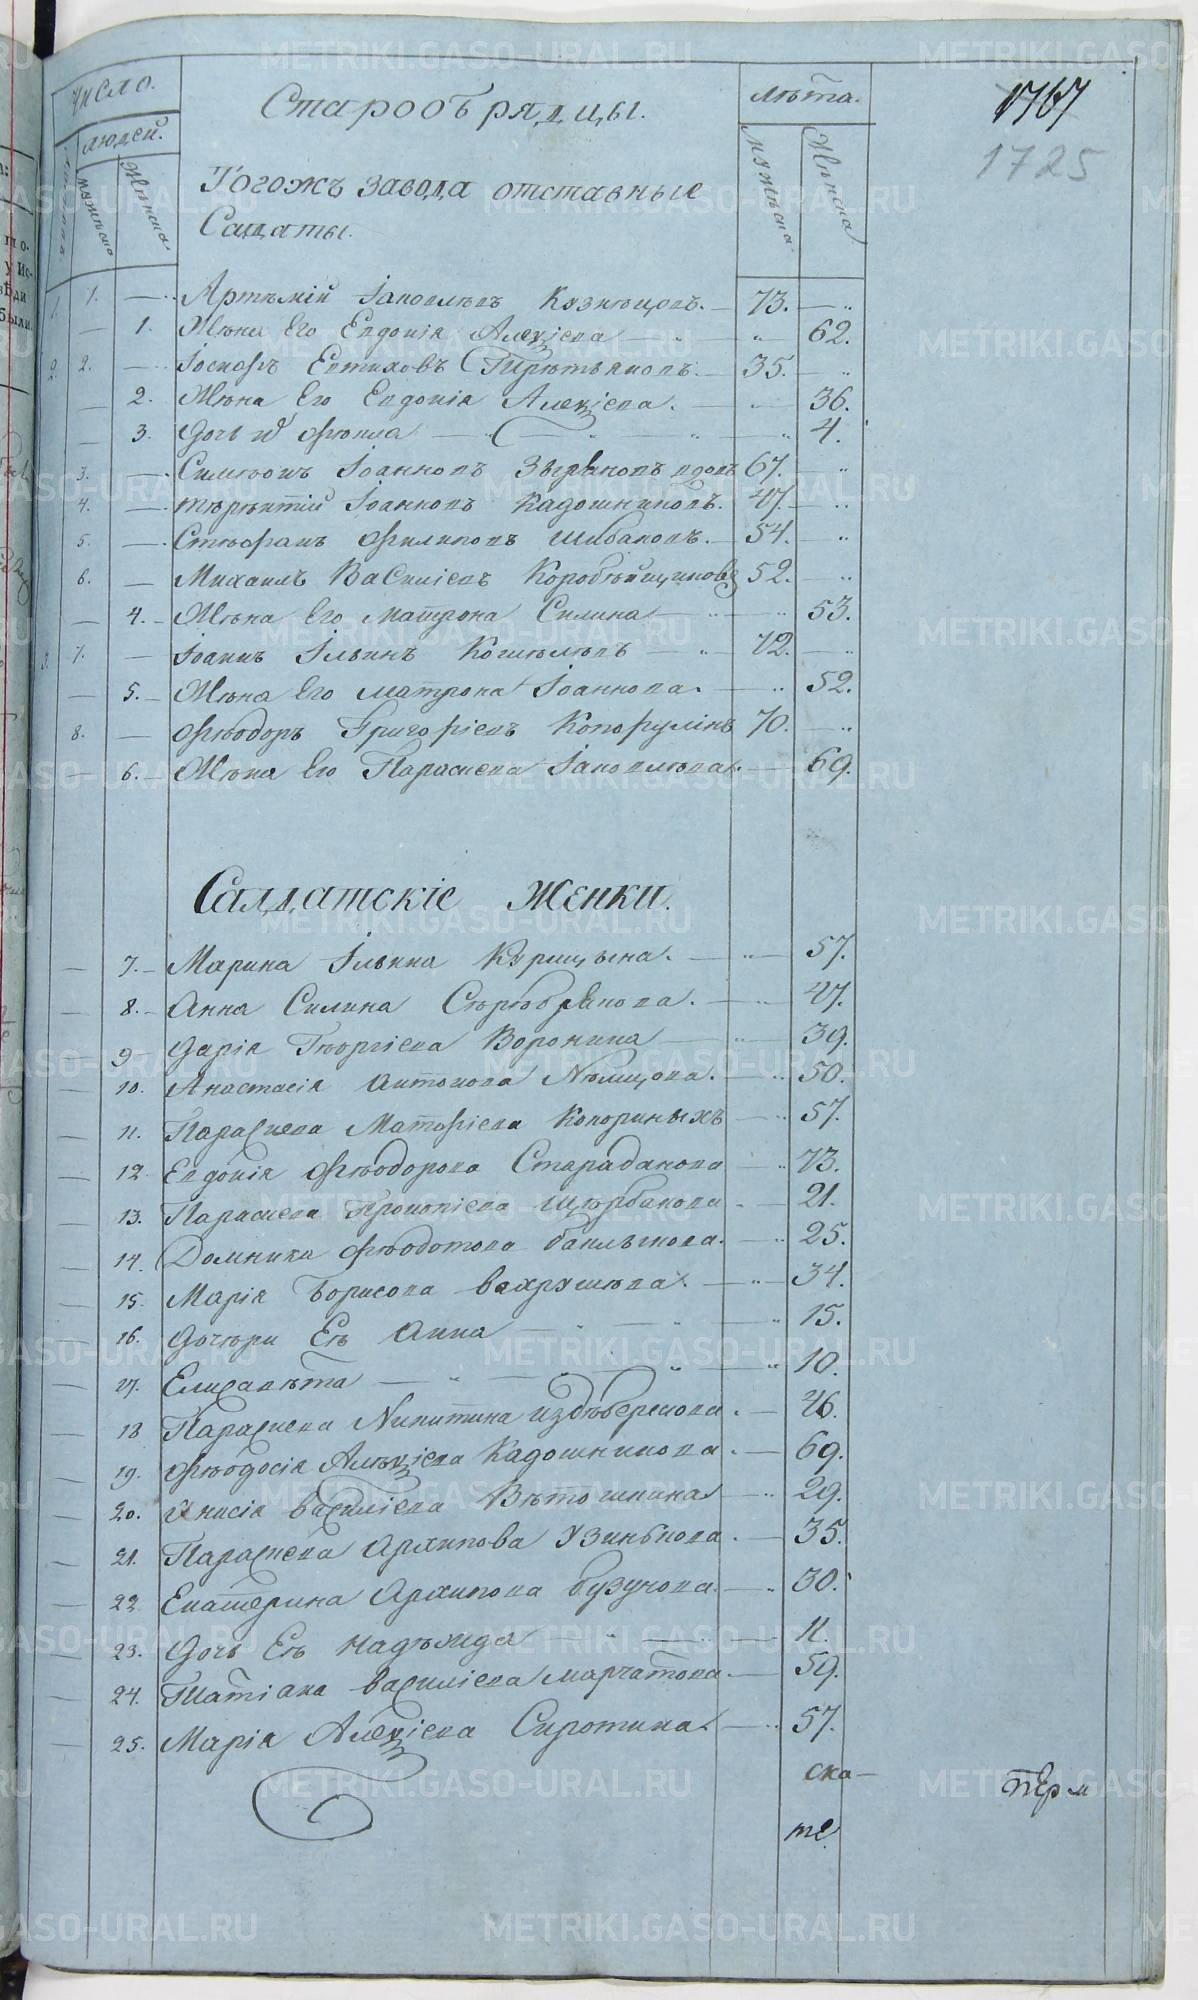 число.
людей.
мужеска
женска
Старообрядцы.
лѣта.
мужеска
женска
1767
1725
Тогожъ завода отставные
Салдаты.
1. 1. — Артемій Іаковлевъ Кузнецовъ. — 73. — "
— 1. Жена Его Евдокія Алекѯіева — " 62.
2. 2. — Іосифъ Евтиховъ Третьяковъ. — 35. — "
— 2. Жена Его Евдокія Алекѯіева. — 36.
— 3. Дочь их Фекла — " — " 4.
3. — Симеонъ Іоанновъ Зверевъ вдовъ 67. — "
4. — Терентій Іоанновъ Кадошниковъ. 47. — "
5. — Стефанъ Филиповъ Шибаковъ. — 54. — "
6. — Михаилъ Василіевъ Коробейщиковъ 52. — "
— 4. Жена Его Матрона Силина — " 53.
7. — Іоаннъ Ільинъ Кошелевъ — " 72. — "
— 5. Жена Его Матрона Іоаннова. — " 52.
8. — Феодоръ Григоріевъ Копорулинъ 70. — "
— 6. Жена Его Параскева Іаковлева. — 69.
Салдатскіе Женки.
— 7. Марина Ільина Курицына. — " — 57.
— 8. Анна Силина Серебрякова. — " — 47.
— 9 Дарія Георгіева Воронина — " — 39.
— 10. Анастасія Антонова Немцова. — " 50.
— 11. Параскева Матфіева Копориныхъ — " 57.
— 12 Евдокія Феодорова Старабанова — " 73.
— 13. Параскева Прокопіева Щербакова — 21.
— 14. Домника Феодотова Баклыкова. — " 25.
— 15. Марія Борисова Вахрушева. — " — 34.
— 16. Дочери Ея Анна — " — " 15.
— 17. Елисавета — " — " 10.
— 18 Параскева Никитина — 46.
— 19. Феодосія Алекѯіева Кадошникова. — 69.
— 20. Василіева Ветошкина — " 29.
— 21. Параскева Архипова Узинькова. — 35.
— 22 Екатерина Архипова Бузунова. — " 30.
— 23. Дочь Ея Надежда — " — 11.
— 24. Татіана Василіева Марчатова. — 59.
— 25. Марія Алекѯіева Сиротина. — " 57.
ска—
те.
перм